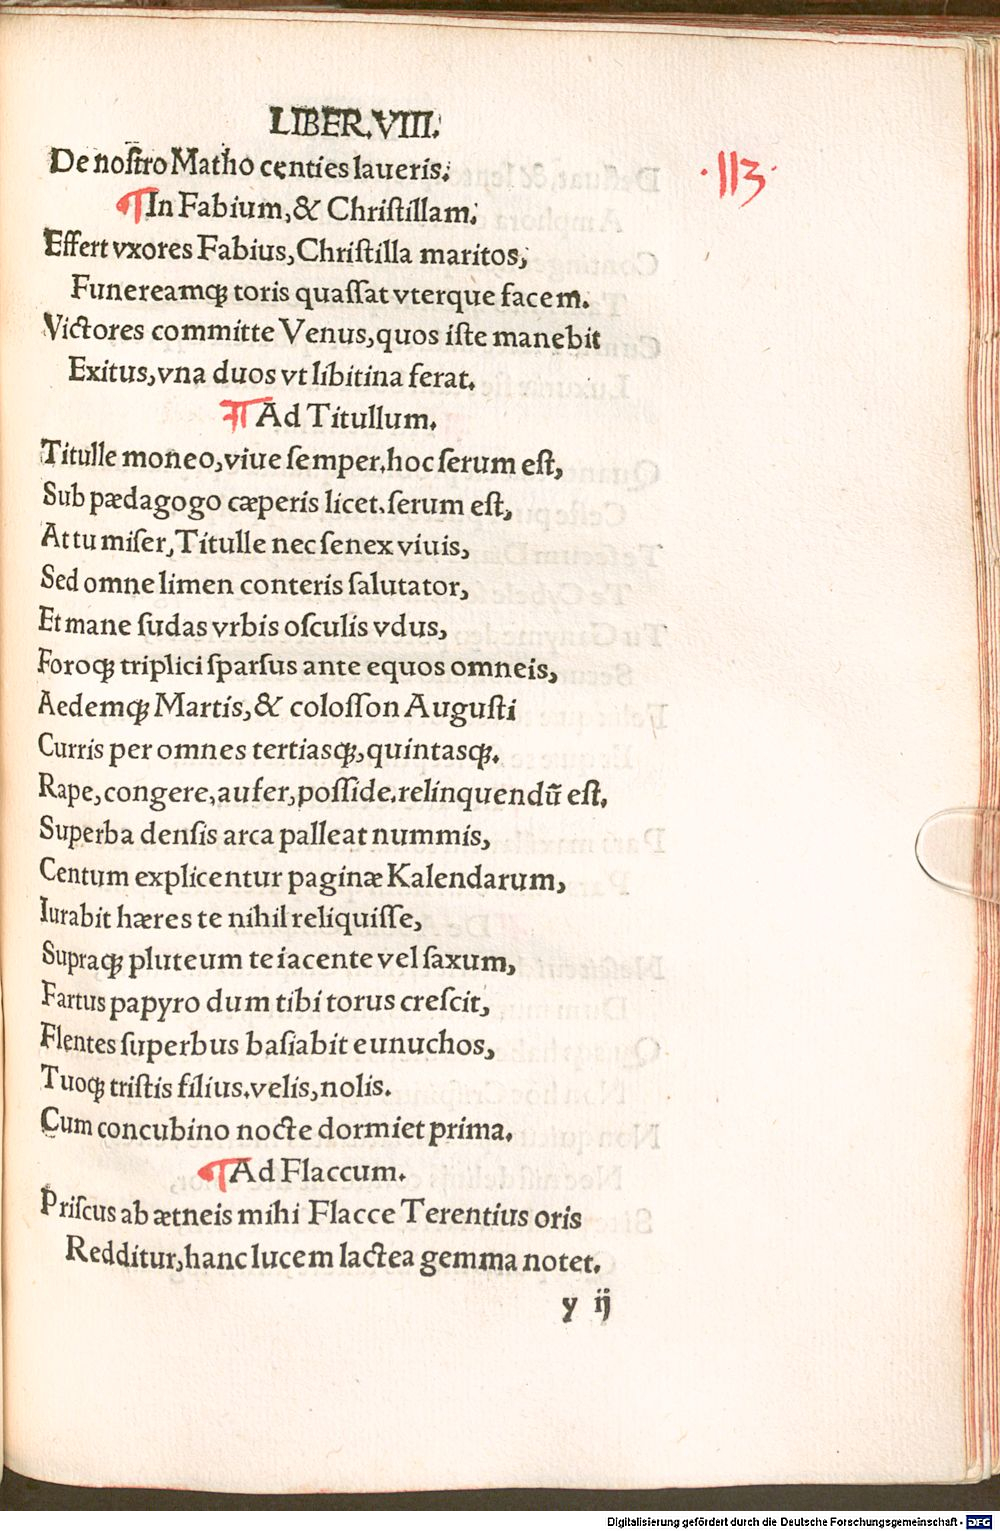 LIBER.VIII.
De noſtro Matho centies laueris.
·113·
¶In Fabium,& Chriſtillam.
Effert vxores Fabius,Chriſtilla maritos,
Funereamqꝫ toris quaſſat vterque facem.
Victores committe Venus,quos iſte manebit
Exitus,vna duos vt libitina ferat.
¶Ad Titullum.
Titulle moneo,viue ſemper.hoc ſerum eſt,
Sub pædagogo cæperis licet.ſerum eſt,
At tu miſer,Titulle nec ſenex viuis,
Sed omne limen conteris ſalutator,
Et mane ſudas vrbis oſculis vdus,
Foroqꝫ triplici ſparſus ante equos omneis,
Aedemqꝫ Martis,& coloſſon Auguſti
Curris per omnes tertiasqꝫ,quintasqꝫ.
Rape,congere,aufer,poſſide.relinquendū eſt.
Superba denſis arca palleat nummis,
Centum explicentur paginæ Kalendarum,
Iurabit hæres te nihil reliquiſſe,
Supraqꝫ pluteum te iacente vel ſaxum,
Fartus papyro dum tibi torus creſcit,
Flentes ſuperbus baſiabit eunuchos,
Tuoqꝫ triſtis filius.velis,nolis.
Cum concubino nocte dormiet prima.
¶Ad Flaccum.
Priſcus ab ætneis mihi Flacce Terentius oris
Redditur,hanc lucem lactea gemma notet.
y ij
Digitalisierung gefördert durch die Deutsche Forschungsgemeinschaft - DFG